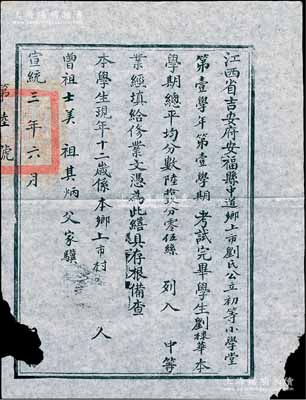 江西省吉安府安福縣中道鄉上市劉氏公立初等小學堂
第壹學年第壹學期考試完畢學生劉棣華本
學期總平均分數陸拾分零伍絲 列入 中等
業經填給修業文憑為此繕具存根備查
本學生現年十二歲係本鄉上市村 人
曾祖士美 祖其炳 父家驥
宣統三年六月
第陸號